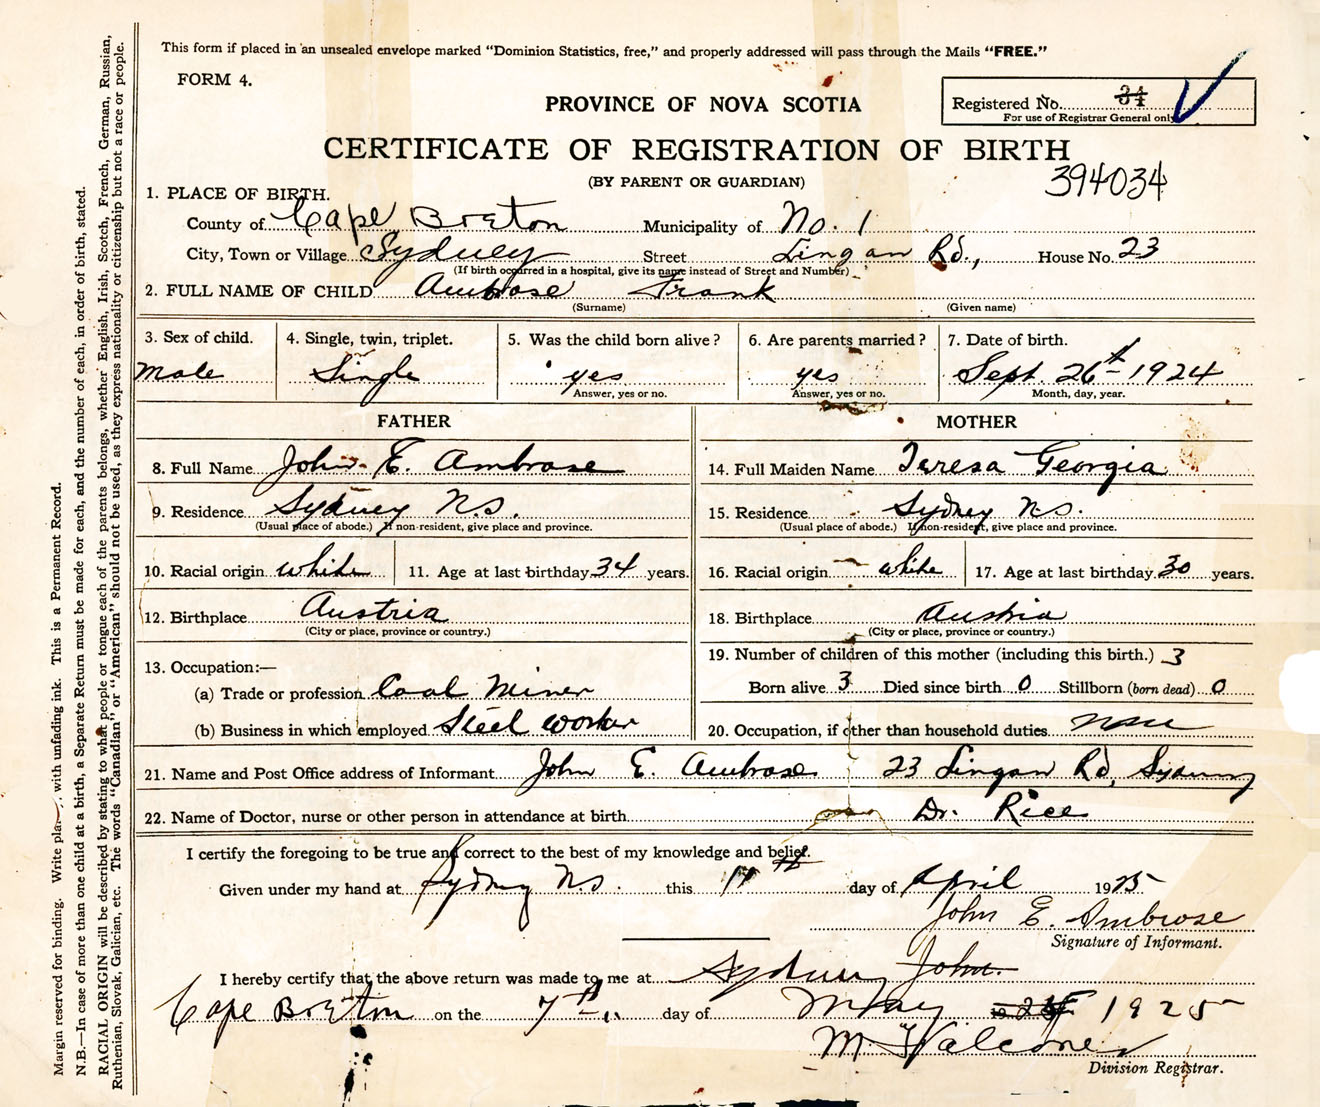 This form if placed in an unsealed envelope marked "Dominion Statistics, free," and properly addressed will pass through the Mails "FREE."
FORM 4.
PROVINCE OF NOVA SCOTIA
Registered No. 34
For use of Registrar General only
CERTIFICATE OF REGISTRATION OF BIRTH
(BY PARENT OR GUARDIAN)
394034
1. PLACE OF BIRTH.
County of Cape Breton Municipality of No. 1
City, Town or Village Sydney Street Lingan Rd., House No. 23
(If birth occurred in a hospital, give its name instead of Street and Number)
2. FULL NAME OF CHILD Ambrose Frank
(Surname) (Given name)
3. Sex of child. 4. Single, twin, triplet. 5. Was the child born alive? 6. Are parents married? 7. Date of birth.
Male Single yes yes Sept. 26th 1924
Answer, yes or no. Answer, yes or no. Month, day, year.
FATHER MOTHER
8. Full Name John E. Ambrose 14. Full Maiden Name Teresa Georgia
9. Residence Sydney N.S. 15. Residence Sydney N.S.
(Usual place of abode.) If non-resident, give place and province. (Usual place of abode.) If non-resident, give place and province.
10. Racial origin white 11. Age at last birthday 34 years. 16. Racial origin white 17. Age at last birthday 30 years.
12. Birthplace Austria 18. Birthplace Austria
(City or place, province or country.) (City or place, province or country.)
13. Occupation:— 19. Number of children of this mother (including this birth.) 3
(a) Trade or profession Coal Miner Born alive 3 Died since birth 0 Stillborn (born dead) 0
(b) Business in which employed Steel worker 20. Occupation, if other than household duties
21. Name and Post Office address of Informant John E. Ambrose 23 Lingan Rd, Sydney
22. Name of Doctor, nurse or other person in attendance at birth Dr. Rice
I certify the foregoing to be true and correct to the best of my knowledge and belief.
Given under my hand at Sydney N.S. this 11th day of April 1925
John E. Ambrose
Signature of Informant.
I hereby certify that the above return was made to me at Sydney John
Cape Breton on the 7th day of May 1925
Division Registrar.
Margin reserved for binding. Write with unfading ink. This is a Permanent Record.
N.B.—In case of more than one child at a birth, a Separate Return must be made for each, and the number of each, in order of birth, stated.
RACIAL ORIGIN will be described by stating to what people or tongue each of the parents belongs, whether English, Irish, Scotch, French, German, Russian,
Ruthenian, Slovak, Galician, etc. The words "Canadian" or "American" should not be used, as they express nationality or citizenship but not a race or people.